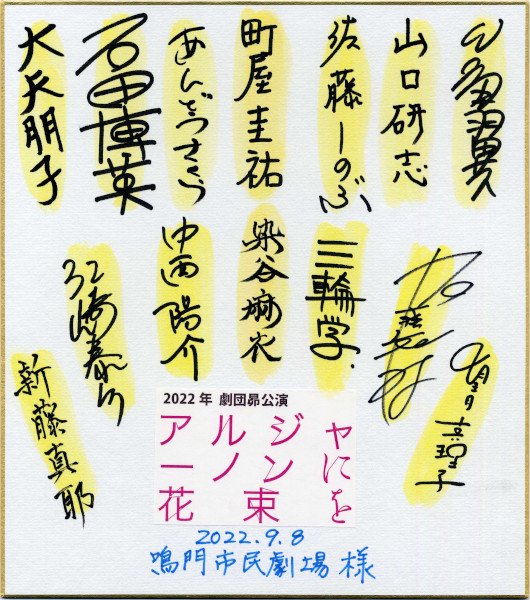 山口研志
佐藤しのぶ
町屋圭祐
あんどうさくら
石田博英
大矢朋子
望月真理子
三輪学
染谷麻衣
中西陽介
新藤真耶
2022年 劇団昴公演
アルジャ
ーノンに
花束を
2022.9.8
鳴門市民劇場 様